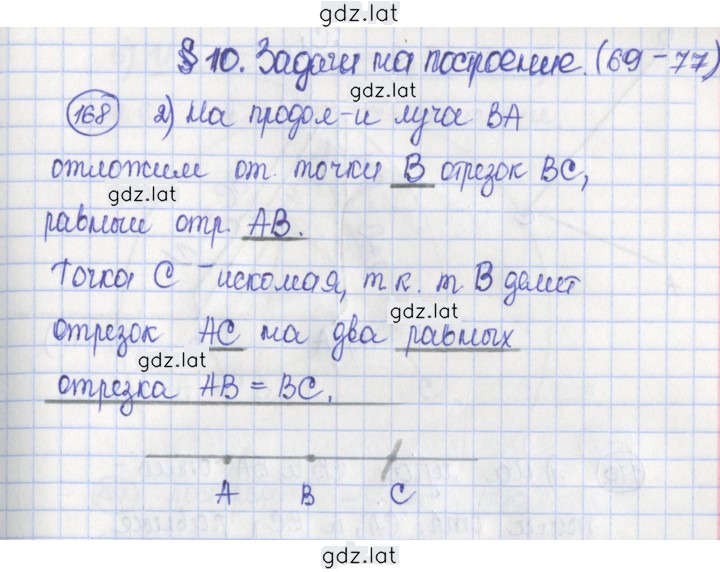 gdz.lat
§ 10. Задачи на построение. (69 - 77)
gdz.lat
168 2) На продол-и луча ВА
отложим от точки В отрезок ВС,
gdz.lat
равный отр. АВ.
Точка С - искомая, т.к. т В делит
gdz.lat
отрезок АС на два равных
gdz.lat
отрезка АВ = ВС.
А В С
gdz.lat